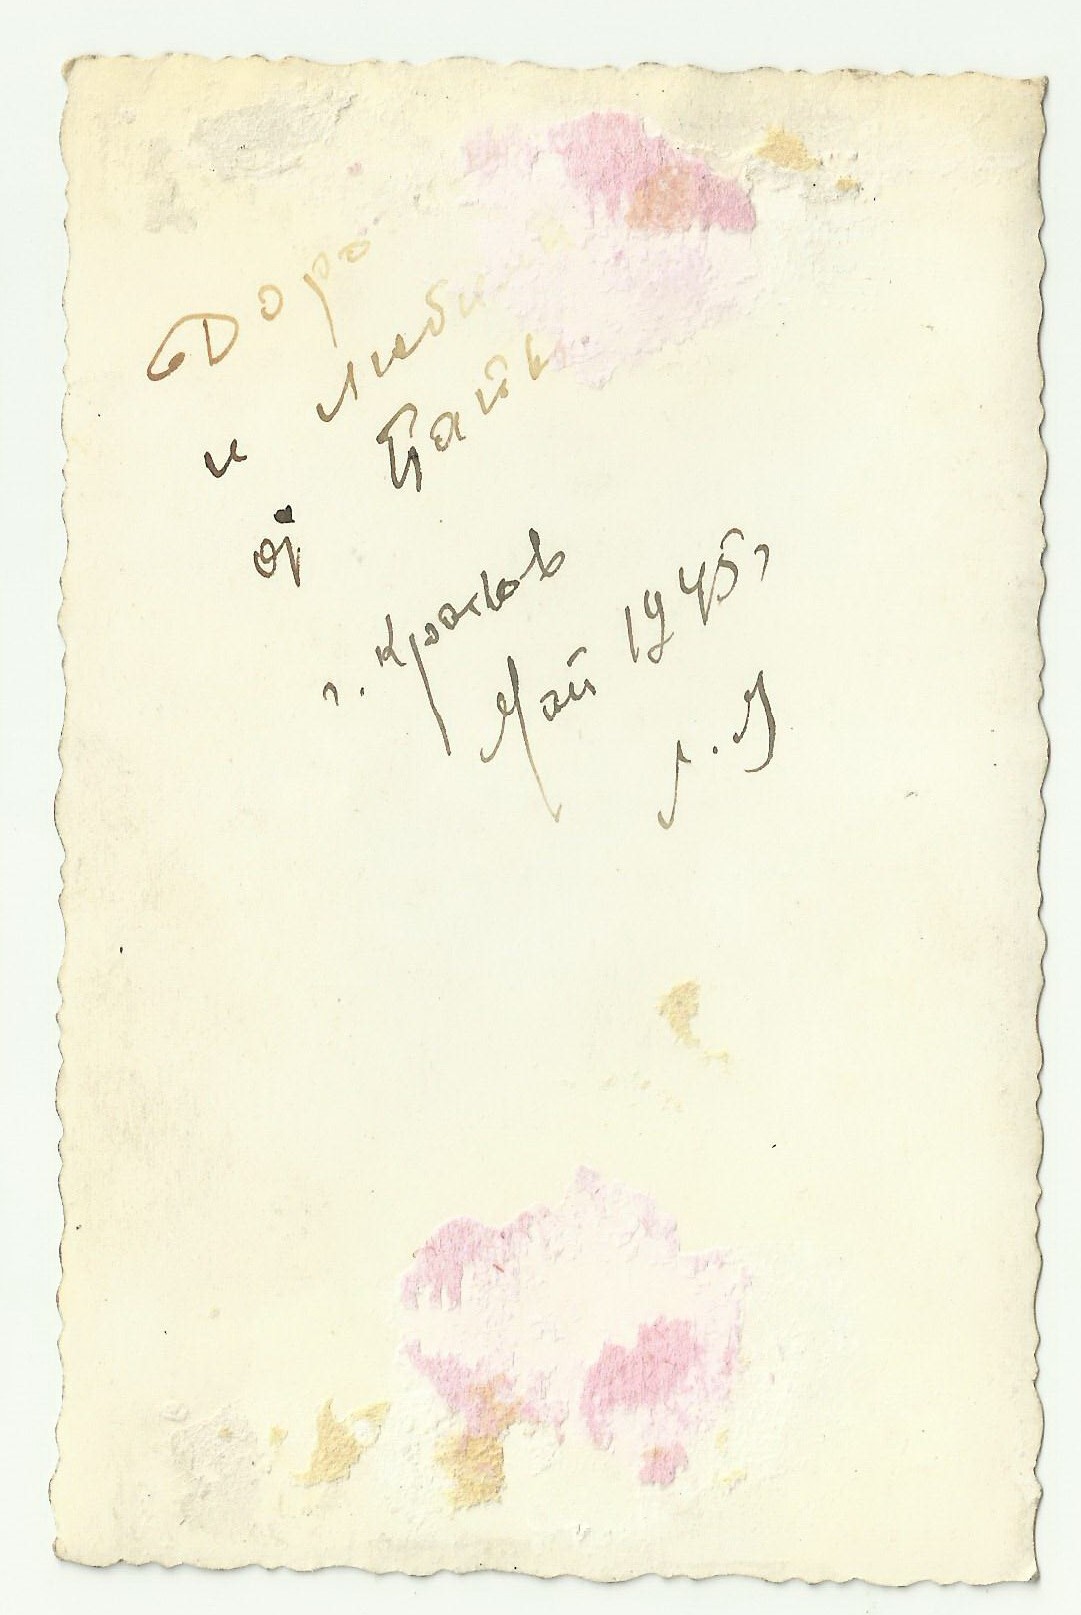 Доро
и люби
от
г. Краков
Май 1945г